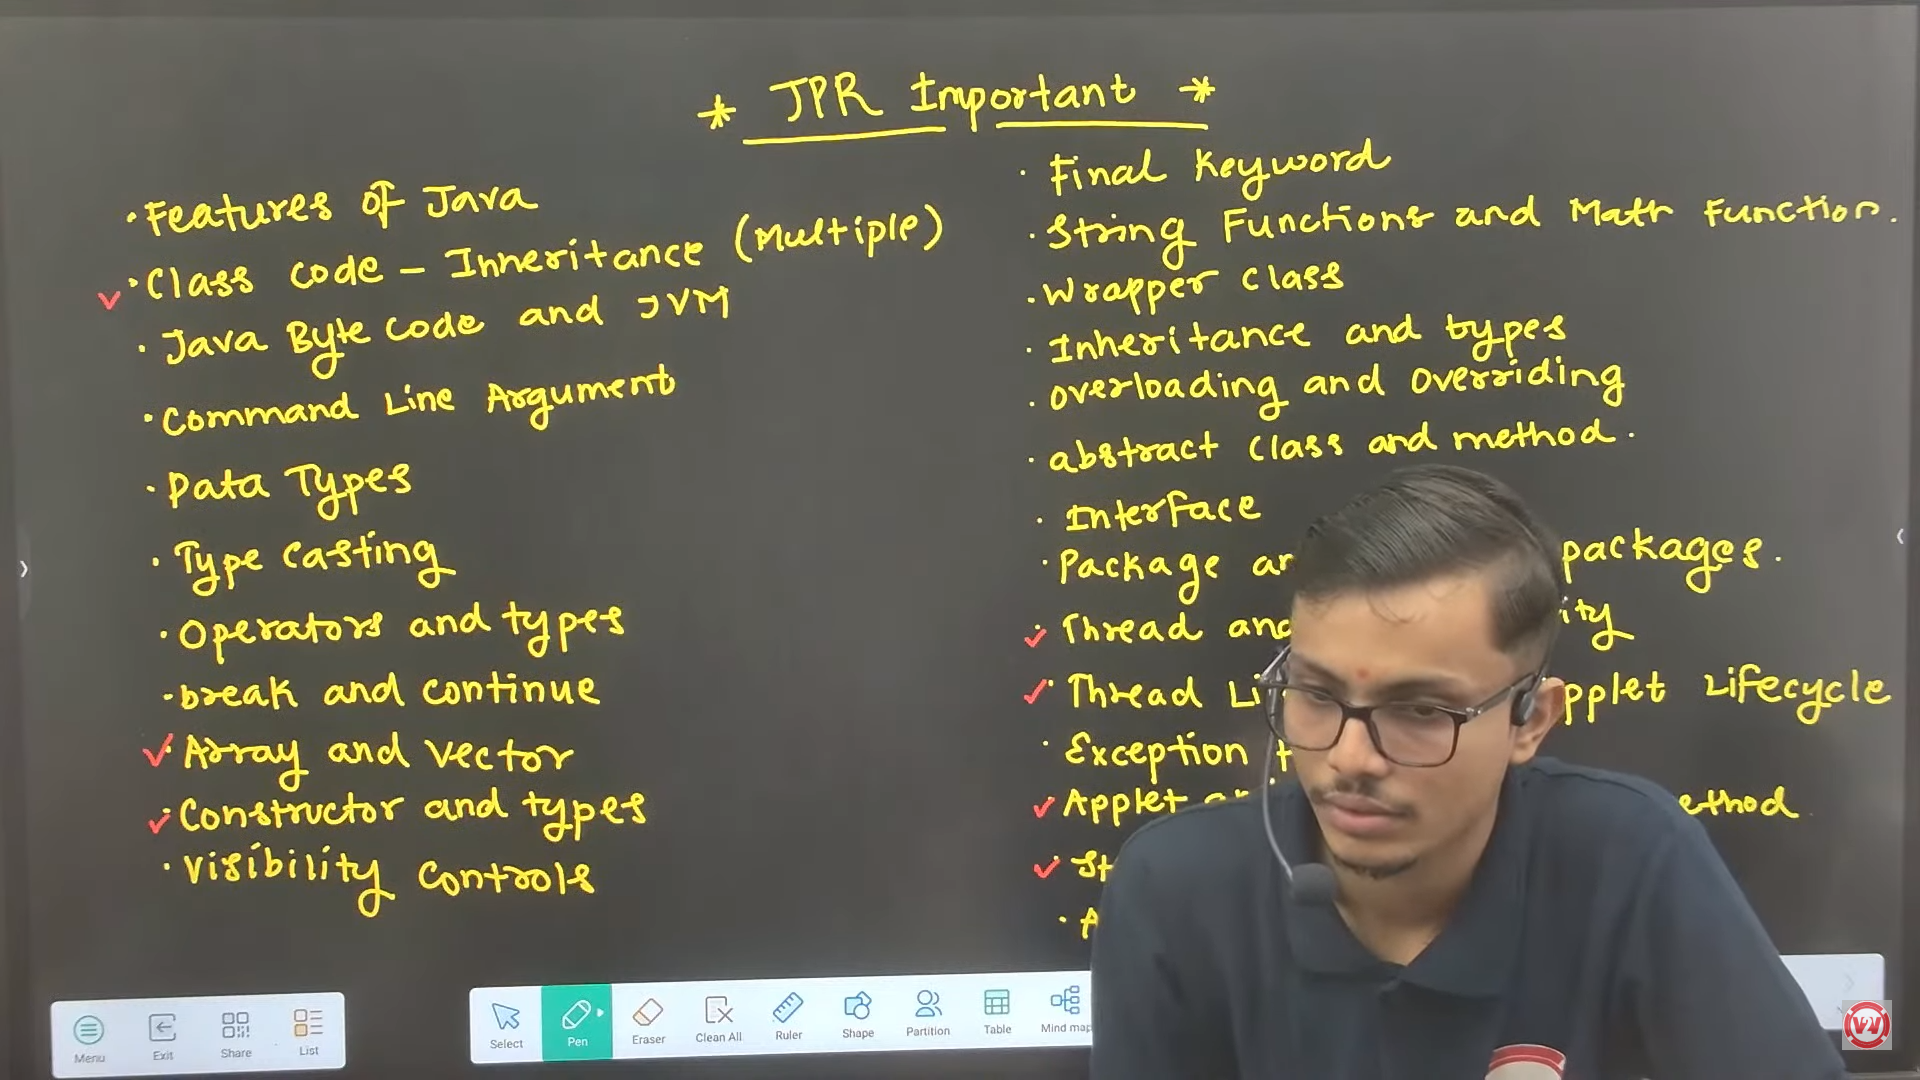 * JPR Important *
• Features of Java
• Class code - Inheritance (Multiple)
• Java Byte code and JVM
• Command Line Argument
• Data Types
• Type Casting
• Operators and types
• break and continue
• Array and vector
• Constructor and types
• Visibility Controls
• Final Keyword
• String Functions and Math Function.
• Wrapper class
• Inheritance and types
• Overloading and Overriding
• abstract class and method.
• Interface
• Package packages.
• Thread and
• Thread Lifecycle
• Exception
• Applet
Menu
Exit
Share
List
Select
Pen
Eraser
Clean All
Ruler
Shape
Partition
Table
Mind map
V2V